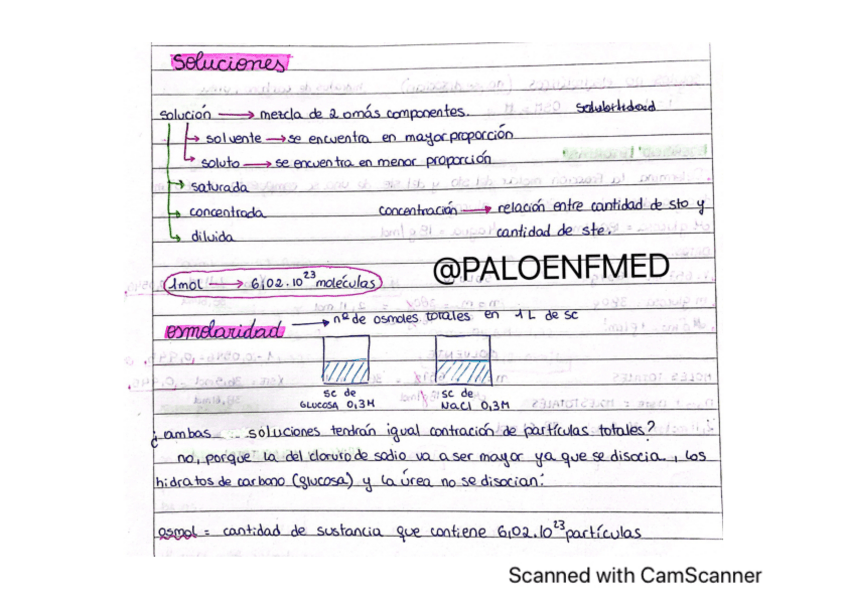 Soluciones
solución → mezcla de 2 o más componentes. Solubilidad
→ solvente → se encuentra en mayor proporción
→ soluto → se encuentra en menor proporción
→ saturada
→ concentrada concentración → relación entre cantidad de sto y
→ diluida cantidad de ste.
@PALOENFMED
1mol → 6,02.10²³ moléculas
osmolaridad → nº de osmoles totales en 1 L de sc
sc de sc de
GLUCOSA 0,3M NaCl 0,3M
¿ambas soluciones tendrán igual contración de partículas totales?
no, porque la del cloruro de sodio va a ser mayor ya que se disocia, los
hidratos de carbono (glucosa) y la úrea no se disocian.
osmol = cantidad de sustancia que contiene 6,02.10²³ partículas
Scanned with CamScanner